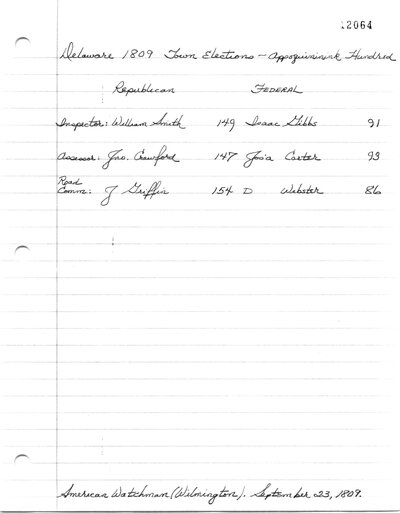 12064
Delaware 1809 Town Elections - Appoquiminink Hundred
Republican FEDERAL
Inspector: William Smith 149 Isaac Gibbs 91
Assessor: Jno. Crawford 147 Jos'a Carter 93
Road
Comm: J Griffin 154 D Webster 86
American Watchman (Wilmington). September 23, 1809.